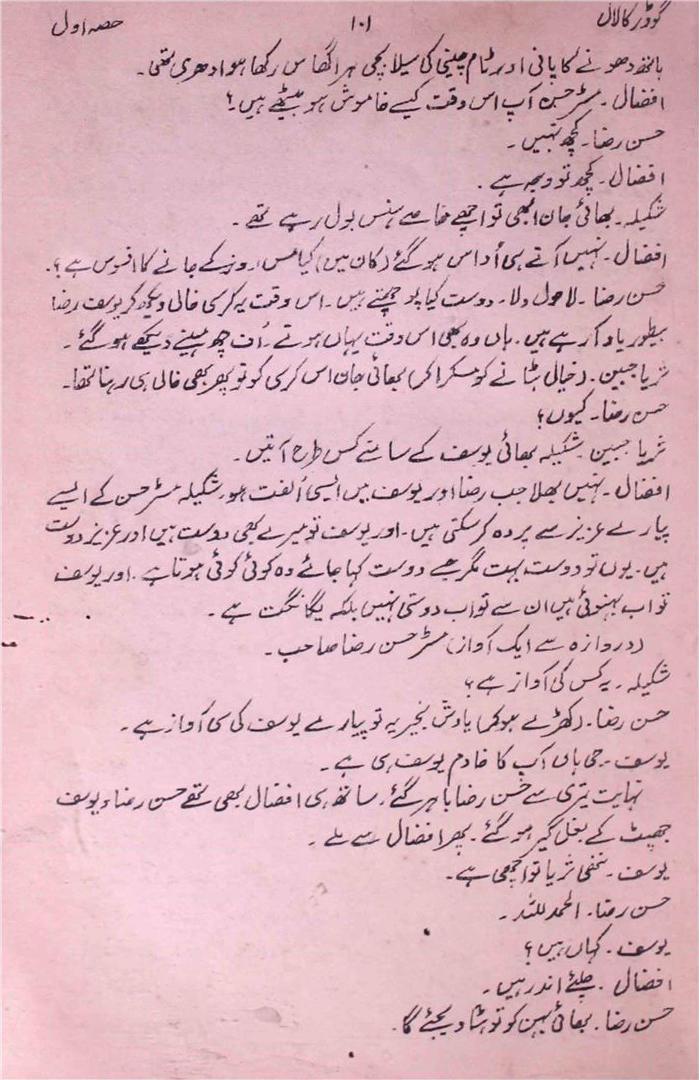 گوڈر کا لال ۱۰۱ حصہ اول
ہاتھ دھونے کا پانی اور ٹام چینی کی سیلابچی ہرا گھاس رکھا ہوا دھری تھی۔
افضال۔ مسٹر حسن آپ اس وقت کیسے خاموش ہو بیٹھے ہیں؟
حسن رضا۔ کچھ نہیں۔
افضال۔ کچھ تو وجہ ہے۔
شکیلہ۔ بھائی جان ابھی تو اچھے خاصے ہنس بول رہے تھے۔
افضال۔ نہیں آتے ہی اُداس ہو گئے (کان میں) کیا مس روز کے جانے کا افسوس ہے؟
حسن رضا۔ لاحول ولا۔ دوست کیا پوچھتے ہیں۔ اس وقت یہ کرسی خالی دیکھ کر یوسف رضا
بطور یاد آ رہے ہیں۔ ہاں وہ بھی اس وقت یہاں ہوتے۔ اُف چھ مہینے دیکھے ہو گئے۔
ثریا جبین۔ (خیال ہٹانے کو مسکرا کر) بھائی جان اس کرسی کو تو پھر بھی خالی ہی رہنا تھا۔
حسن رضا۔ کیوں؟
ثریا جبین۔ شکیلہ بھائی یوسف کے سامنے کس طرح آتیں۔
افضال۔ نہیں بھلا جب رضا اور یوسف میں ایسی اُلفت ہو۔ شکیلہ مسٹر حسن کے ایسے
پیارے عزیز سے پردہ کر سکتی ہیں۔ اور یوسف تو میرے بھی دوست ہیں اور عزیز دوست
ہیں۔ یوں تو دوست بہت مگر جسے دوست کہا جائے وہ کوئی کوئی ہوتا ہے۔ اور یوسف
تو اب بہنوئی ہیں ان سے تو اب دوستی نہیں بلکہ یگانگت ہے۔
(دروازہ سے ایک آواز) مسٹر حسن رضا صاحب۔
شکیلہ۔ یہ کس کی آواز ہے؟
حسن رضا۔ (کھڑے ہو کر) یادش بخیر یہ تو پیارے یوسف کی سی آواز ہے۔
یوسف۔ جی ہاں آپ کا خادم یوسف ہی ہے۔
نہایت تیزی سے حسن رضا باہر گئے۔ ساتھ ہی افضال بھی تھے حسن رضا و یوسف
جھپٹ کے بغل گیر ہو گئے۔ پھر افضال سے ملے۔
یوسف۔ ننھی ثریا تو اچھی ہے۔
حسن رضا۔ الحمد للہ۔
یوسف۔ کہاں ہیں؟
افضال۔ چلئے اندر ہیں۔
حسن رضا۔ بھائی بہن کو تو ہٹا دیجئے گا۔